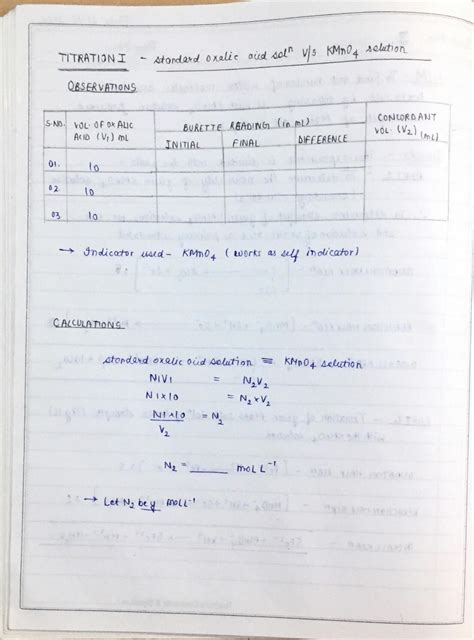 TITRATION I - standard oxalic acid solⁿ V/s KMnO4 solution
OBSERVATIONS
S.NO. VOL. OF OXALIC ACID (V1) mL BURETTE READING (in mL) INITIAL FINAL DIFFERENCE CONCORDANT VOL. (V2) (mL)
01. 10
02 10
03 10
→ Indicator used - KMnO4 (works as self indicator)
CALCULATIONS
standard oxalic acid solution ≡ KMnO4 solution
N1V1 = N2V2
N1 x 10 = N2 x V2
N1 x 10 = N2
V2
N2 = ______ mol L⁻¹
→ Let N2 be y mol L⁻¹